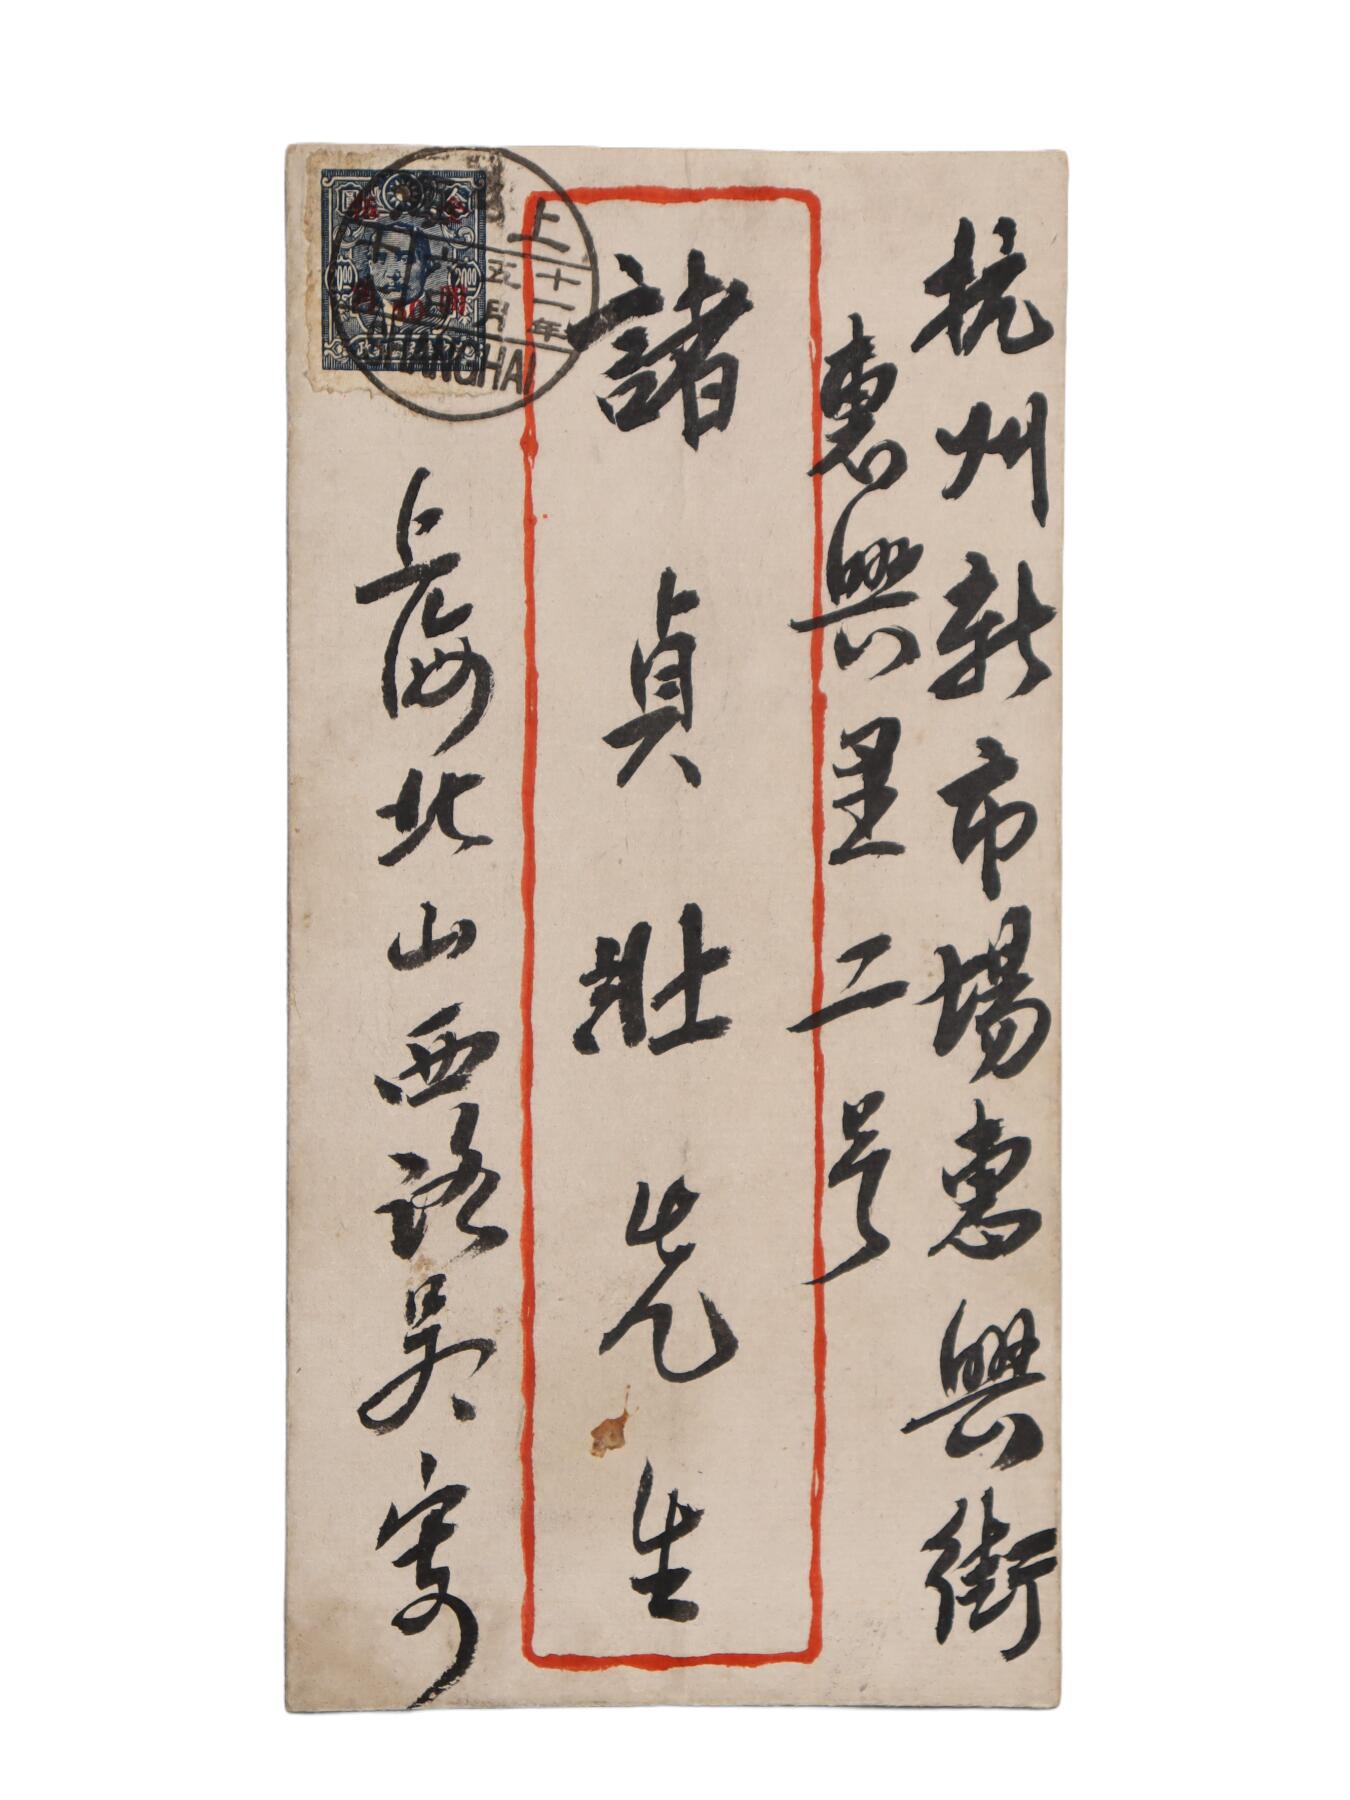 杭州新市場惠興街
惠興里二号
諸貞壯先生
上海北山西路吴寄
上
十一年
五月
SHANGHAI